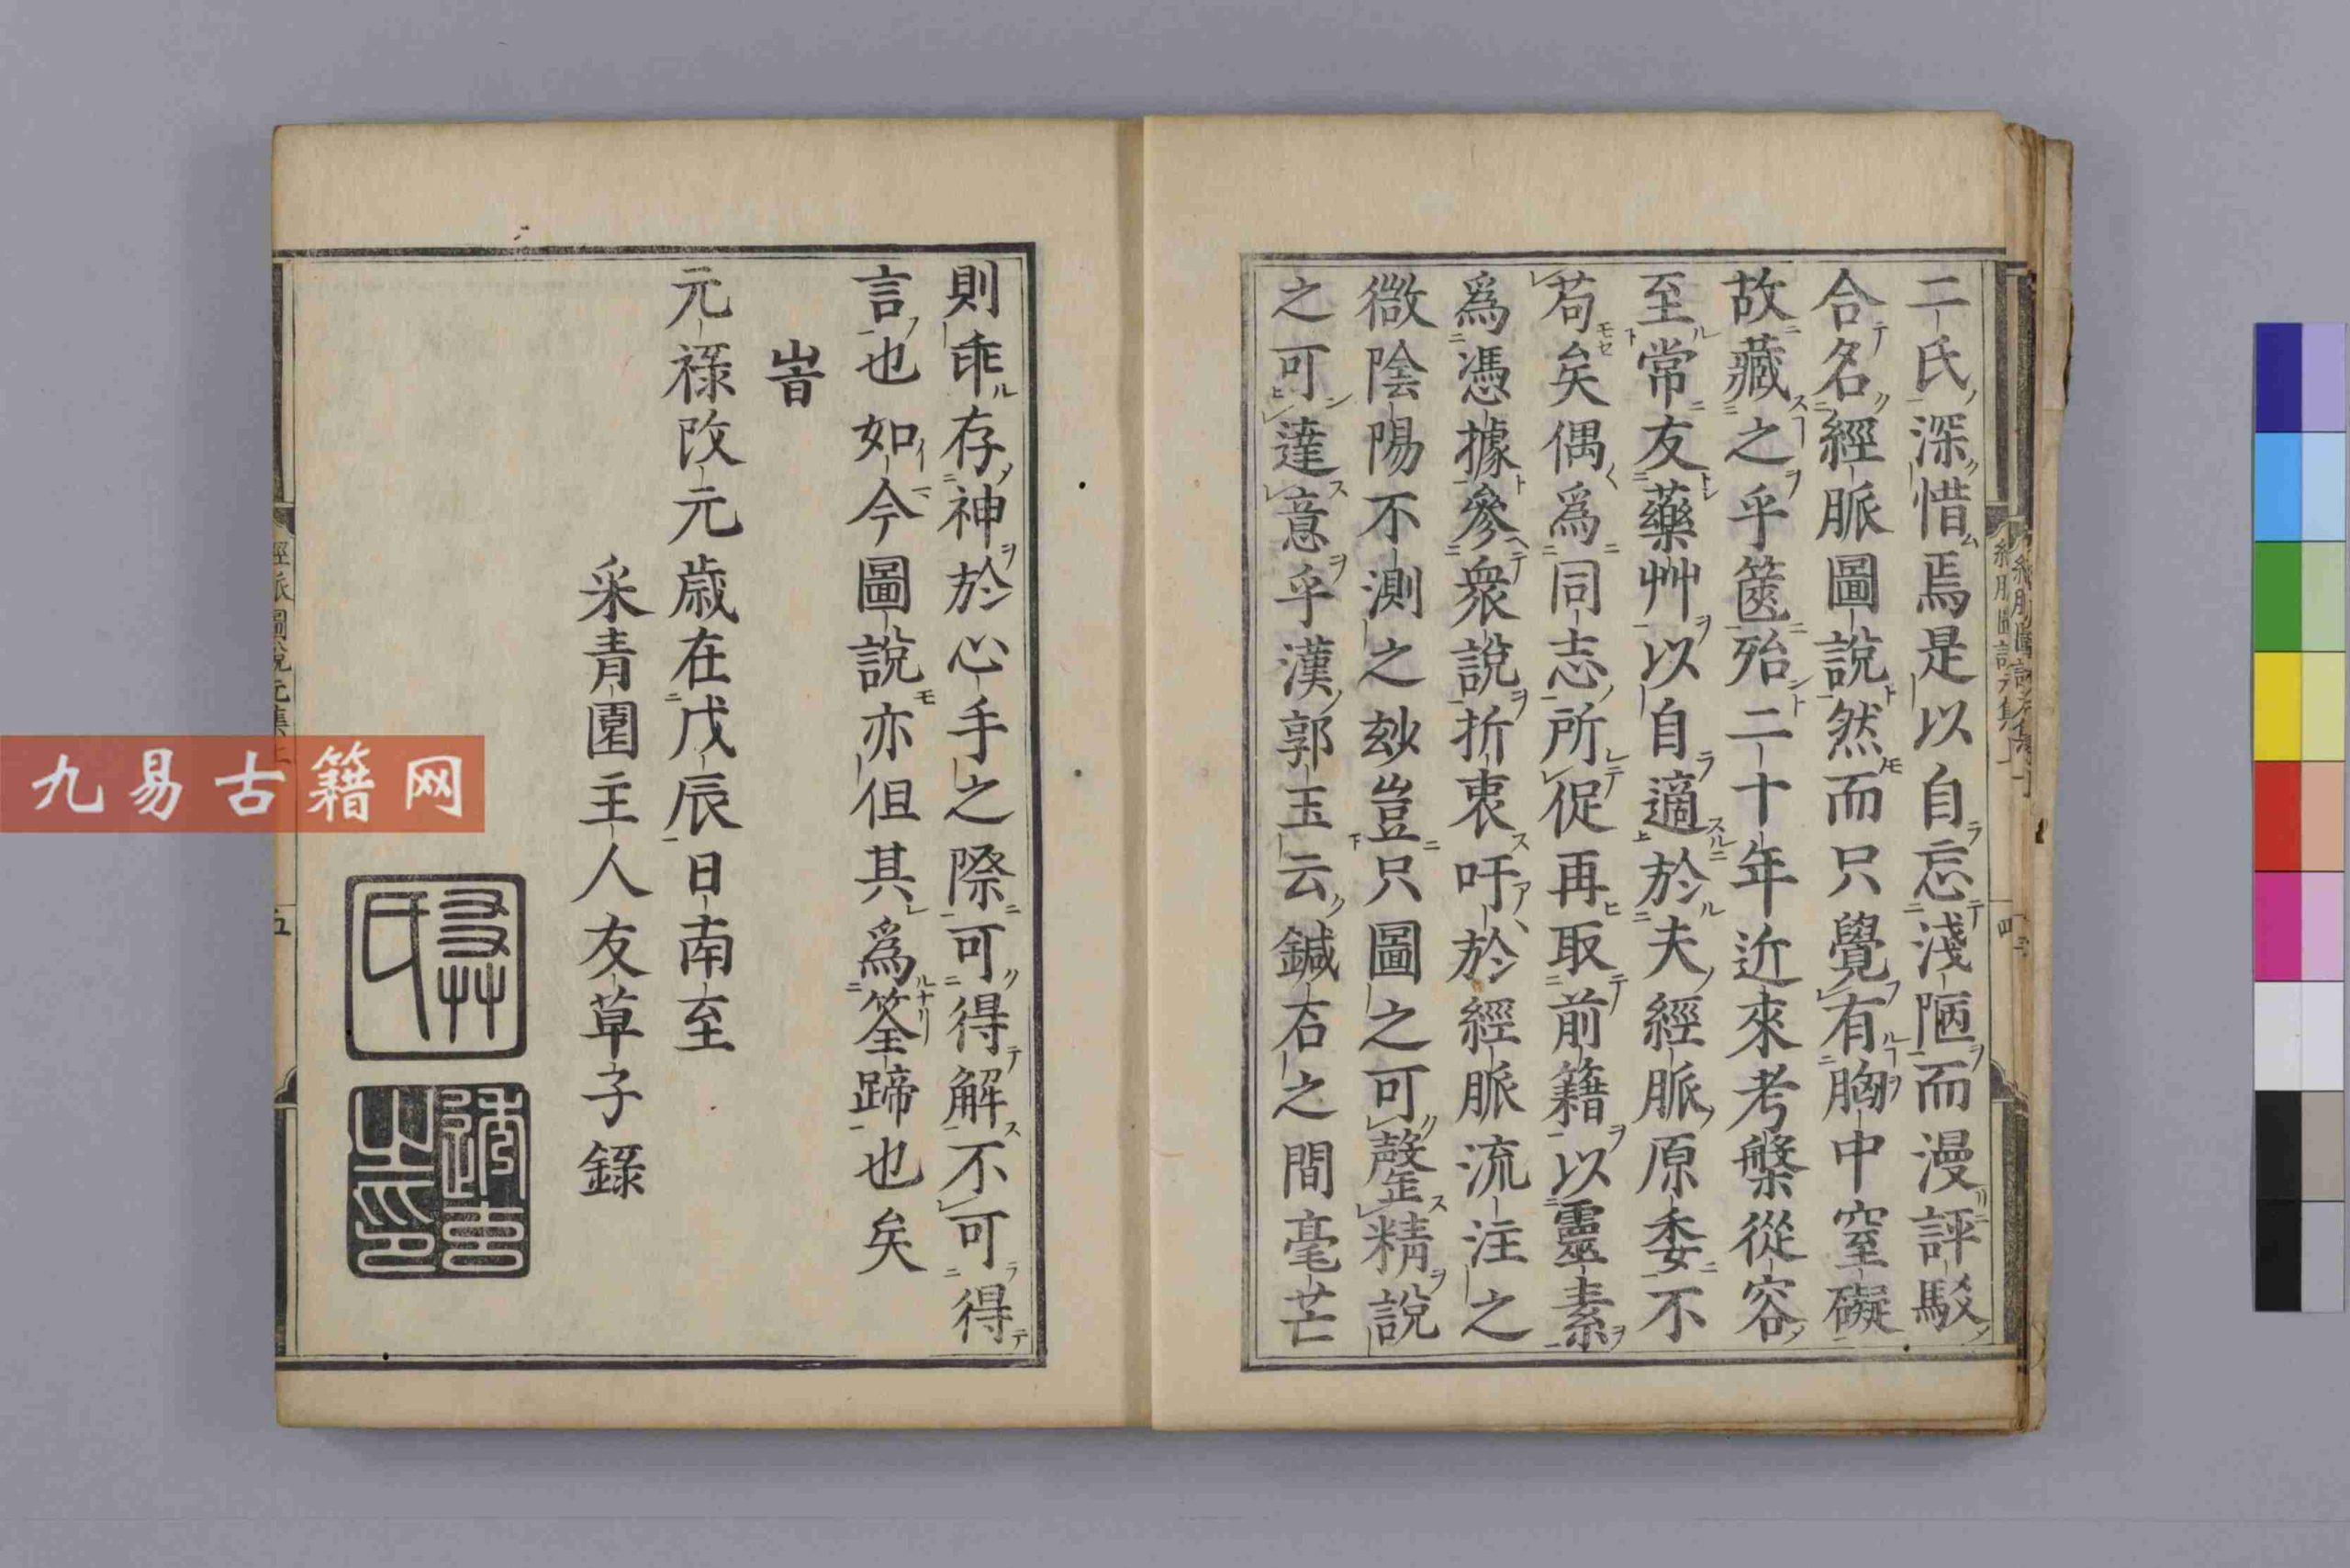 二氏深惜焉是以自忘淺陋而漫評駁
合名經脈圖說然而只覺有胸中窒礙
故藏之乎篋殆二十年近來考槃從容
至常友藥艸以自適於夫經脈原委不
苟矣偶爲同志所促再取前籍以靈素
爲憑據參衆說折衷吁於經脈流注之
微陰陽不測之玅豈只圖之可罄精說
之可達意乎漢郭玉云鍼石之間毫芒
則乖存神於心手之際可得解不可得
言也如今圖說亦但其爲筌蹄也矣
旹
元祿改元歲在戊辰日南至
采青園主人友草子錄
經脈圖說元集上
五
九易古籍网